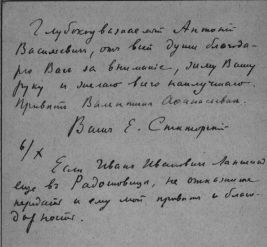 Глубокоуважаемый Антонъ
Васильевичъ, отъ всей души благода-
рю Васъ за вниманіе, жму Вашу
руку и желаю всего наилучшаго.
Привѣтъ Валентинѣ Афанасьевнѣ.
Вашъ Е.
6/X
Если Иванъ Ивановичъ
еще въ Радомовицѣ, не откажите
передать и ему мой привѣтъ и благо-
дарность.